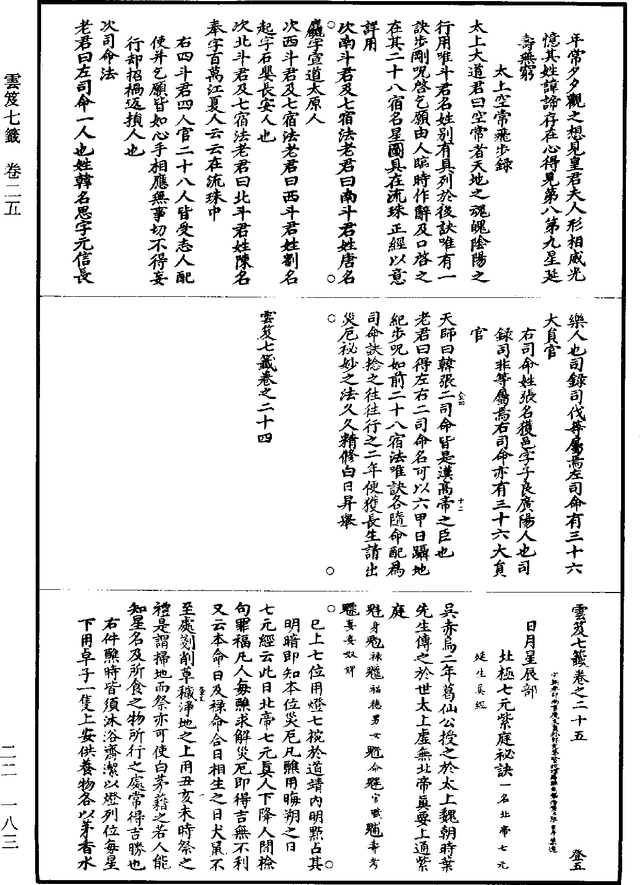 年常夕夕觀之想見皇君夫人形相威光
憶其姓諱諦存在心得見第八第九星延
壽無窮
太上空常飛步錄
太上大道君曰空常者天地之魂魄陰陽之
行用唯斗君名姓別有具列於後訣唯有一
訣步剛呪啓乞願由人臨時作辭及口啓之
在其二十八宿名星圖具在流珠正經以意
詳用
次南斗君及七宿法老君曰南斗君姓唐名
字宣道太原人
次西斗君及七宿法老君曰西斗君姓劉名
起字石嬰長安人也
次北斗君及七宿法老君曰北斗君姓陳名
奉字百萬江夏人云云在流珠中
右四斗君四人官二十八人皆受志人配
使并乞願皆如心手相應無事切不得妄
行却招禍返損人也
次司命法
老君曰左司命一人也姓韓名思字元信長
樂人也司錄司伐等屬焉左司命有三十六
大員官
右司命姓張名獲邑字子良廣陽人也司
錄司非等屬焉右司命亦有三十六大員
官
天師曰韓張二司命皆是漢高帝之臣也
老君曰得左右二司命名可以六甲日躡地
紀步呪如前二十八宿法唯訣各隨命配爲
司命訣捻之往往行之二年便獲長生請出
災厄祕妙之法久久精修白日昇舉
雲笈七籤卷之二十四
雲笈七籤卷之二十五
登五
日月星辰部
北極七元紫庭祕訣一名北帝七元
延生真經
吳赤烏二年葛仙公授之於太上魏朝時葉
先生傳之於世太上虛無北帝真要上通紫
庭
魁身魁祿福德男女命官職壽考
妻妾奴婢
已上七位用燈七椀於道靖內明點占其
明暗即知本位災厄凡醮用晦朔之日
七元經云此日北帝七元真人下降人間檢
句罪福凡人每醮求解災厄即得吉無不利
又云本命日及祿命合日相生之日犬鼠不
至處剗削草穢淨地之上用丑亥未時祭之
禮是謂掃地而祭亦可使白茅藉之若人能
知星名及所食之物所行之處常得吉勝也
右件醮時皆須沐浴齋潔以燈列位每星
下用卓子一隻上安供養物各以茅香水
雲笈七籤 卷二五
二二—一八三